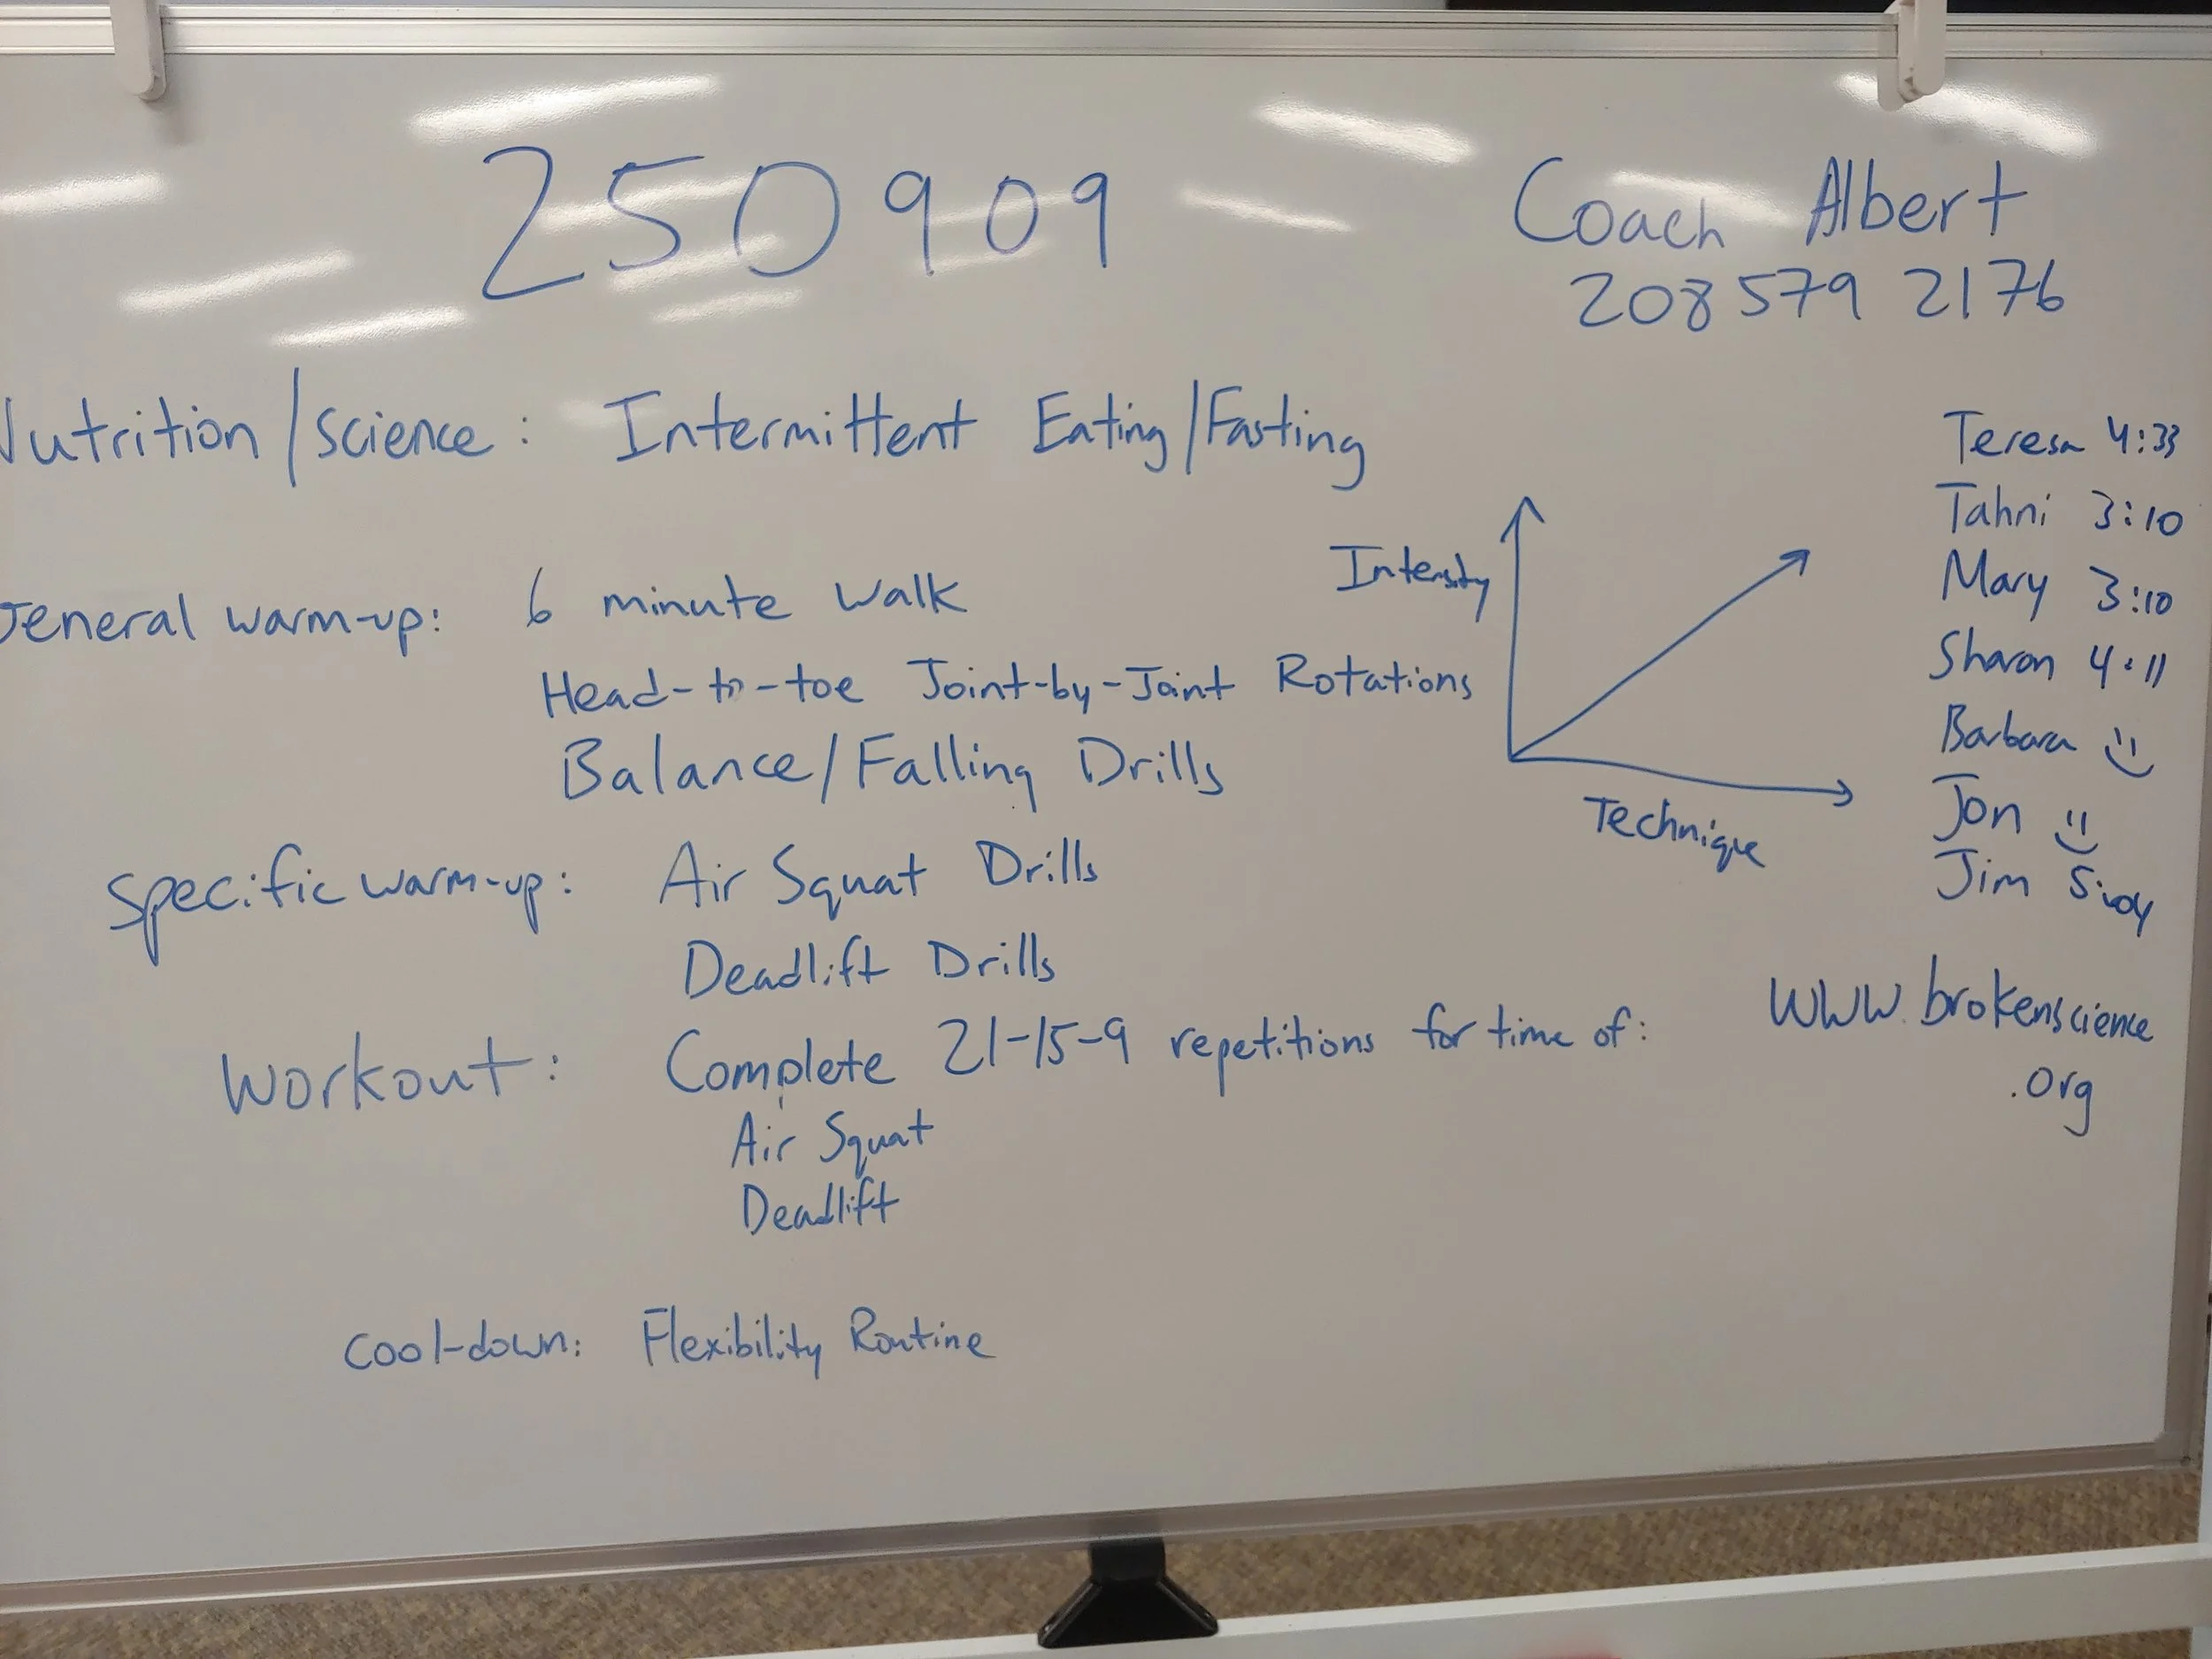 250909
Coach Albert
208 579 2176
Nutrition/science: Intermittent Eating/Fasting
General warm-up: 6 minute walk
Head-to-toe Joint-by-Joint Rotations
Balance/Falling Drills
Specific warm-up: Air Squat Drills
Deadlift Drills
Workout: Complete 21-15-9 repetitions for time of:
Air Squat
Deadlift
Cool-down: Flexibility Routine
Intensity
Technique
Teresa 4:33
Tahni 3:10
Mary 3:10
Sharon 4:11
Barbara
Jon
Jim
www.brokenscience
.org